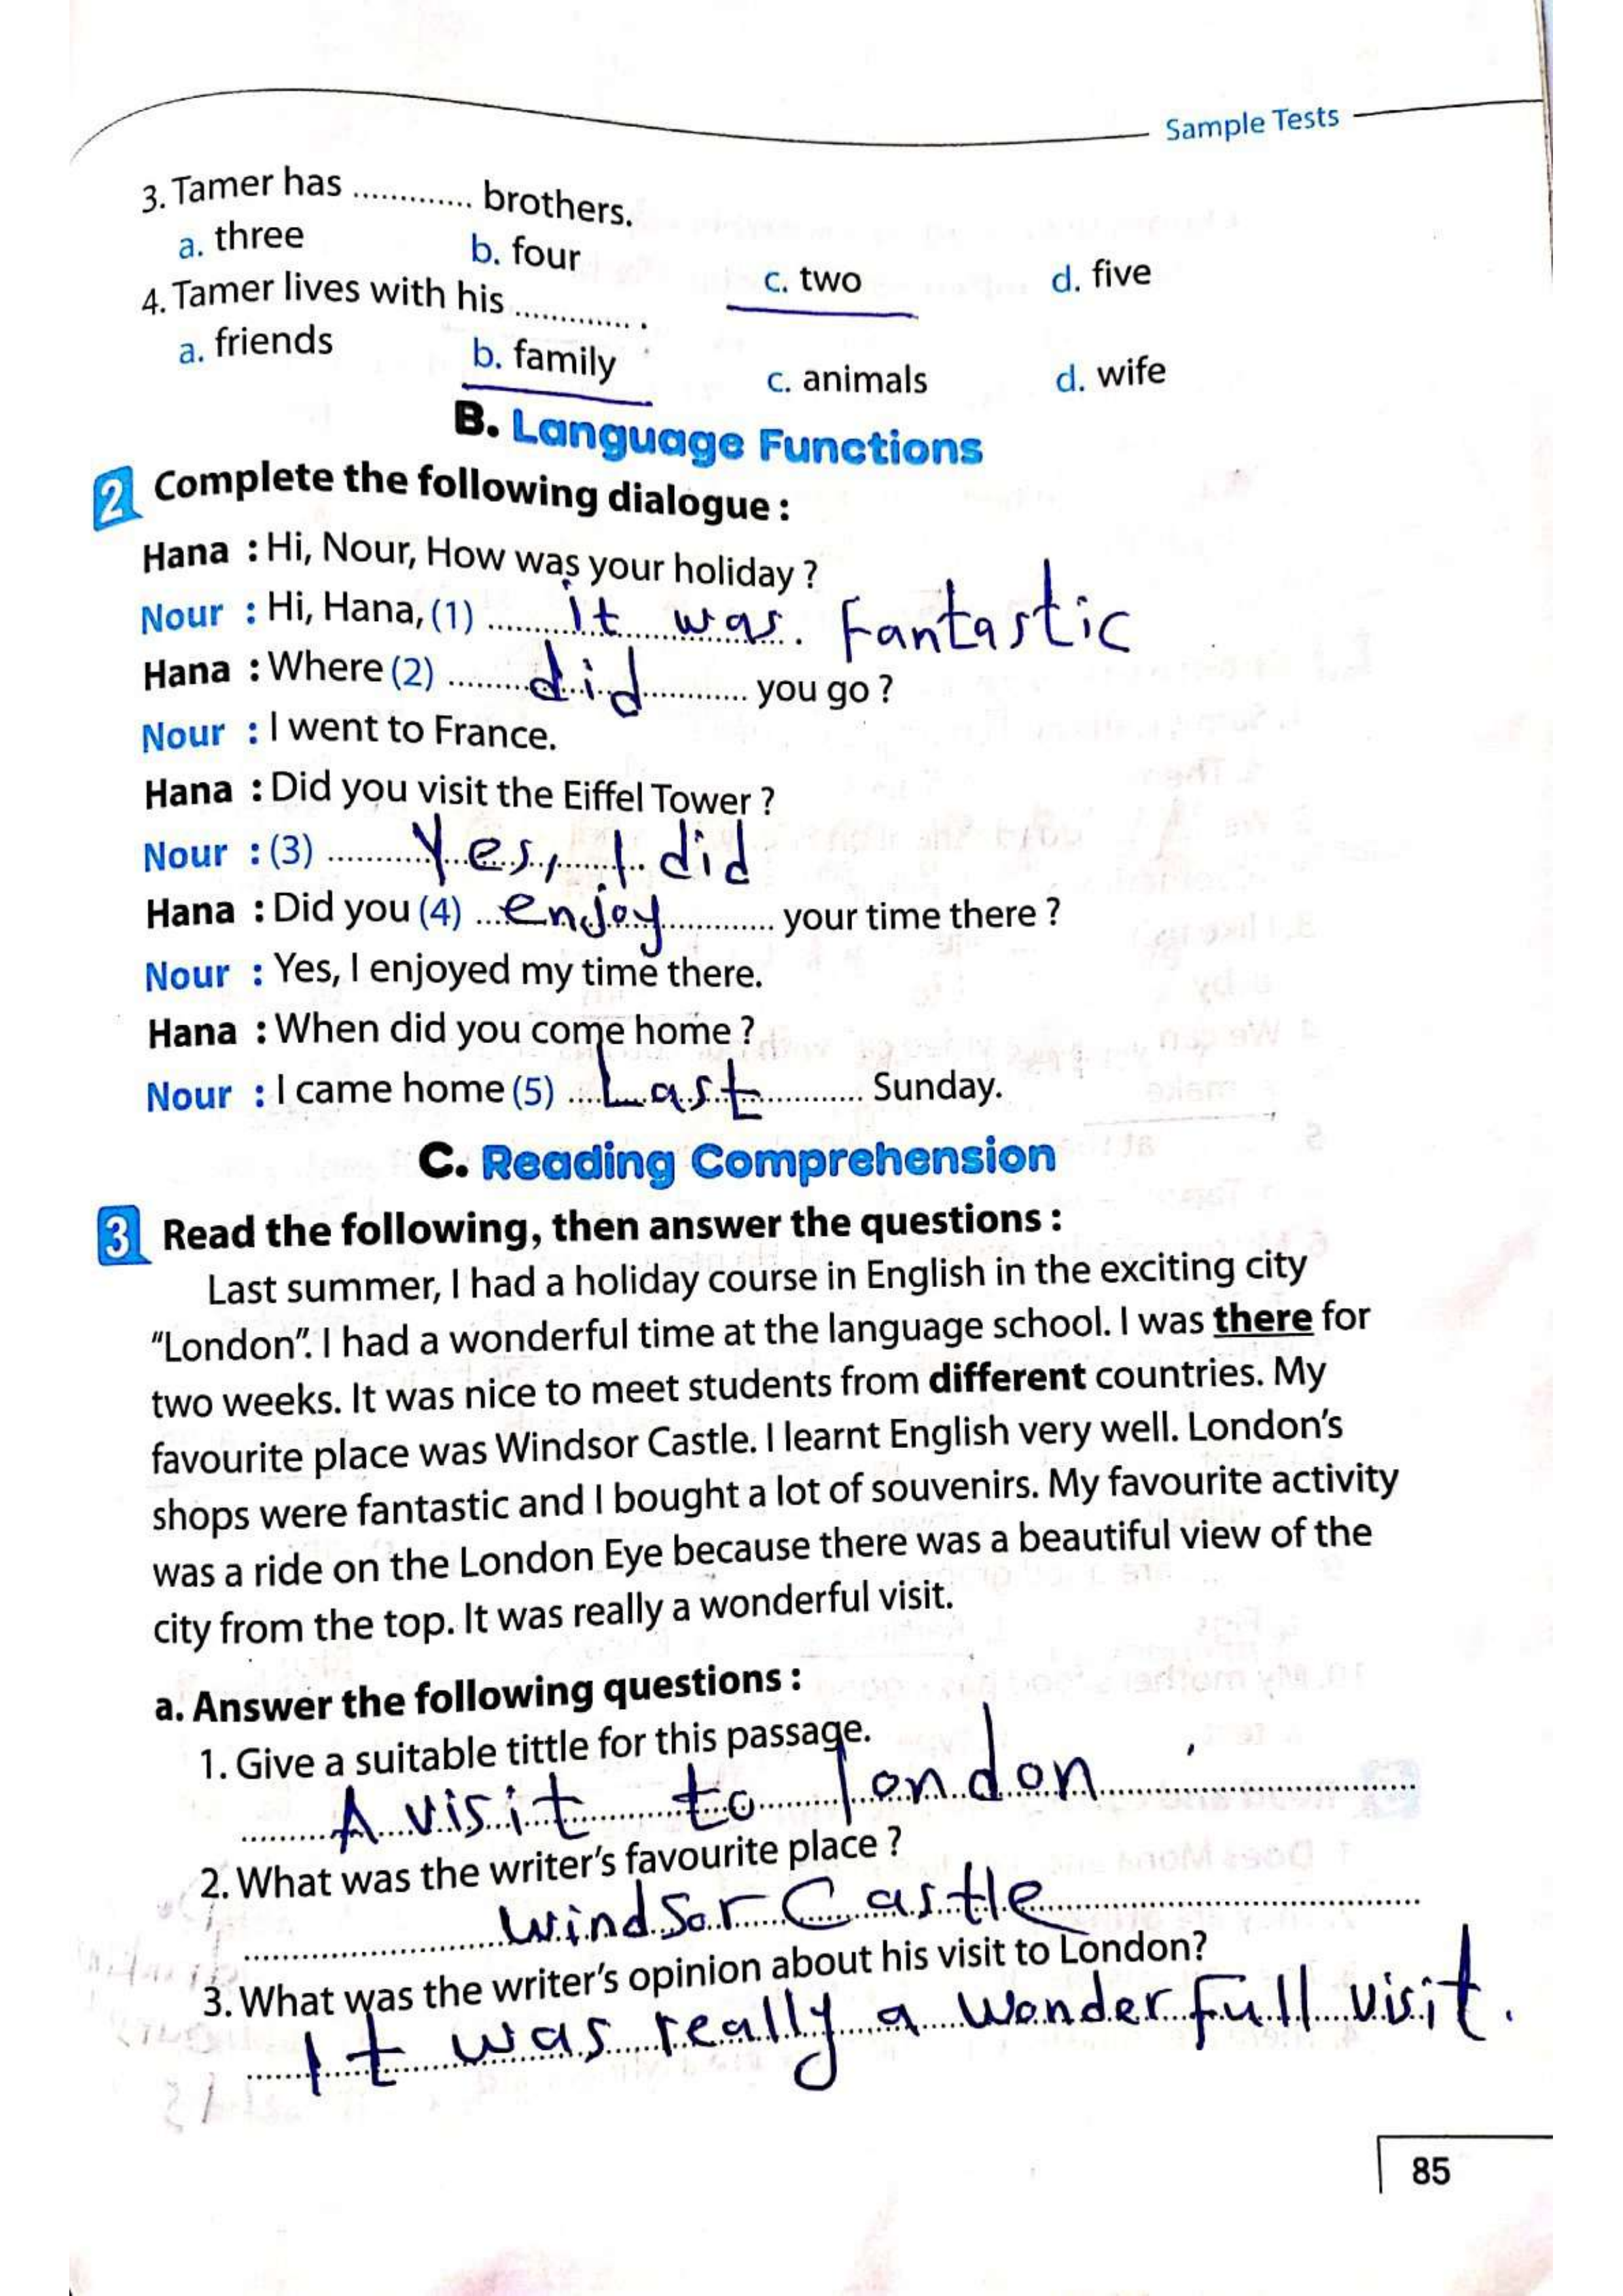 Sample Tests
3. Tamer has ............ brothers.
a. three b. four c. two d. five
4. Tamer lives with his ............ .
a. friends b. family c. animals d. wife
B. Language Functions
2 Complete the following dialogue :
Hana : Hi, Nour, How was your holiday ?
Nour : Hi, Hana, (1) it was. Fantastic
Hana : Where (2) did you go ?
Nour : I went to France.
Hana : Did you visit the Eiffel Tower ?
Nour : (3) Yes, I did
Hana : Did you (4) enjoy your time there ?
Nour : Yes, I enjoyed my time there.
Hana : When did you come home ?
Nour : I came home (5) Last Sunday.
C. Reading Comprehension
3 Read the following, then answer the questions :
Last summer, I had a holiday course in English in the exciting city
“London”. I had a wonderful time at the language school. I was there for
two weeks. It was nice to meet students from different countries. My
favourite place was Windsor Castle. I learnt English very well. London’s
shops were fantastic and I bought a lot of souvenirs. My favourite activity
was a ride on the London Eye because there was a beautiful view of the
city from the top. It was really a wonderful visit.
a. Answer the following questions :
1. Give a suitable tittle for this passage.
A visit to london
2. What was the writer’s favourite place ?
windsor Castle
3. What was the writer’s opinion about his visit to London?
It was really a wonderfull visit.
85